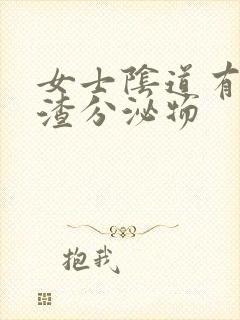 女士陰道有
渣分泌物
抱我